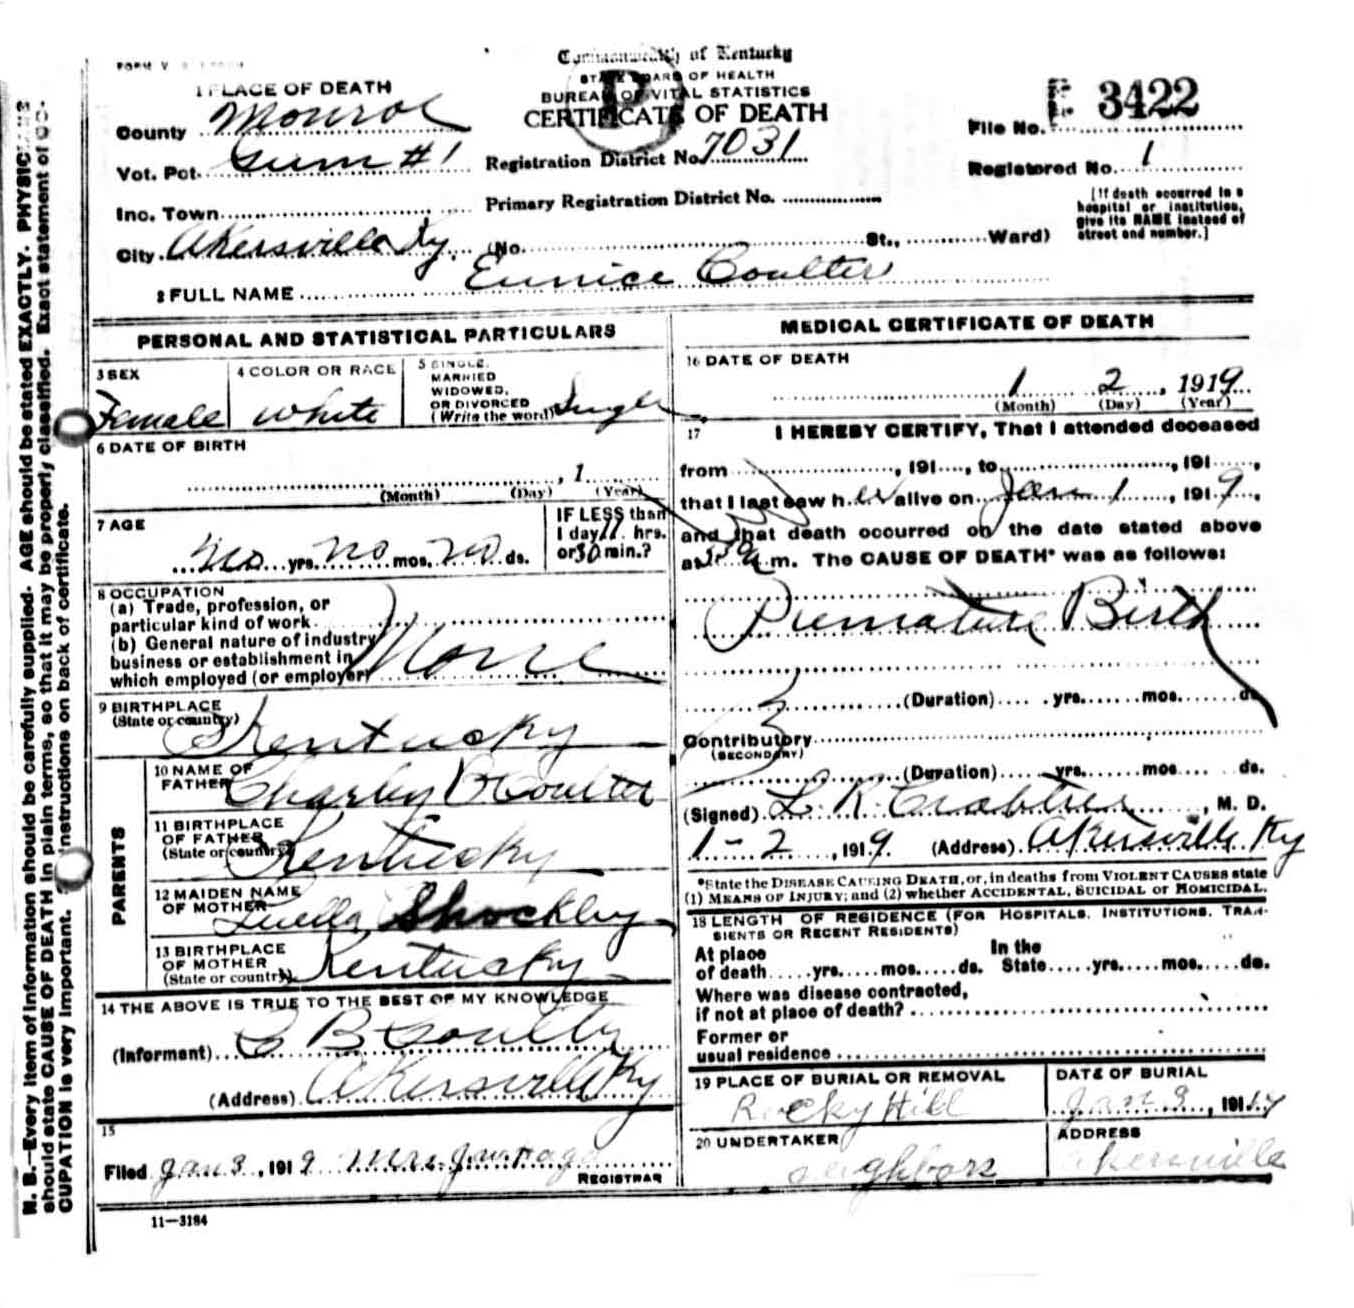 Commonwealth of Kentucky
STATE BOARD OF HEALTH
BUREAU OF VITAL STATISTICS
CERTIFICATE OF DEATH
1 PLACE OF DEATH
County Monroe
Vot. Pct. Gum #1
Inc. Town
City Akersville Ky (No. St., Ward)
Registration District No. 7031
Primary Registration District No.
File No. 3422
Registered No. 1
[If death occurred in a
hospital or institution,
give its NAME instead of
street and number.]
2 FULL NAME Eunice Coulter
PERSONAL AND STATISTICAL PARTICULARS
3 SEX
Female
4 COLOR OR RACE
White
5 SINGLE,
MARRIED
WIDOWED,
OR DIVORCED
(Write the word) Single
6 DATE OF BIRTH
, 1
(Month) (Day) (Year)
7 AGE
no yrs. no mos. no ds.
IF LESS than
1 day 11 hrs.
or 30 min.?
8 OCCUPATION
(a) Trade, profession, or
particular kind of work
(b) General nature of industry
business or establishment in
which employed (or employer) None
9 BIRTHPLACE
(State or country) Kentucky
PARENTS
10 NAME OF
FATHER Charley B Coulter
11 BIRTHPLACE
OF FATHER
(State or country) Kentucky
12 MAIDEN NAME
OF MOTHER Luella Shockley
13 BIRTHPLACE
OF MOTHER
(State or country) Kentucky
14 THE ABOVE IS TRUE TO THE BEST OF MY KNOWLEDGE
(Informant) C B Coulter
(Address) Akersville Ky
15
Filed Jan 3, 1919 Mrs.
REGISTRAR
11—3184
MEDICAL CERTIFICATE OF DEATH
16 DATE OF DEATH
1 2, 1919
(Month) (Day) (Year)
17 I HEREBY CERTIFY, That I attended deceased
from , 191 , to , 191 ,
that I last saw her alive on Jan 1, 1919,
and that death occurred on the date stated above
at m. The CAUSE OF DEATH* was as follows:
Premature Birth
(Duration) yrs. mos. ds.
Contributory
(SECONDARY)
(Duration) yrs. mos. ds.
(Signed) L R Crabtree, M. D.
1-2, 1919. (Address) Akersville Ky
*State the DISEASE CAUSING DEATH, or, in deaths from VIOLENT CAUSES state
(1) MEANS OF INJURY; and (2) whether ACCIDENTAL, SUICIDAL or HOMICIDAL.
18 LENGTH OF RESIDENCE (FOR HOSPITALS, INSTITUTIONS, TRAN-
SIENTS OR RECENT RESIDENTS)
At place
of death yrs. mos. ds.
In the
State yrs. mos. ds.
Where was disease contracted,
if not at place of death?
Former or
usual residence
19 PLACE OF BURIAL OR REMOVAL
Rocky Hill
DATE OF BURIAL
Jan 3, 191
20 UNDERTAKER
neighbors
ADDRESS
Akersville
N. B.—Every item of information should be carefully supplied. AGE should be stated EXACTLY. PHYSICIANS
should state CAUSE OF DEATH in plain terms, so that it may be properly classified. Exact statement of OC-
CUPATION is very important. instructions on back of certificate.